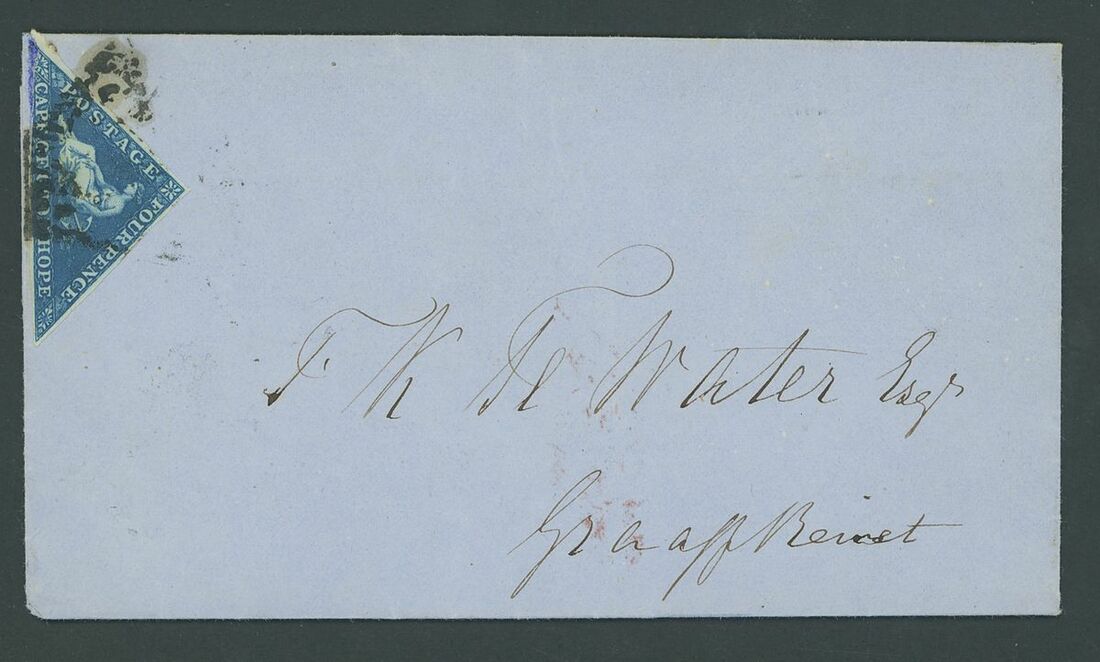 POSTAGE
FOUR PENCE
CAPE OF GOOD HOPE
T K Te Water Esqr
Graaff Reinet